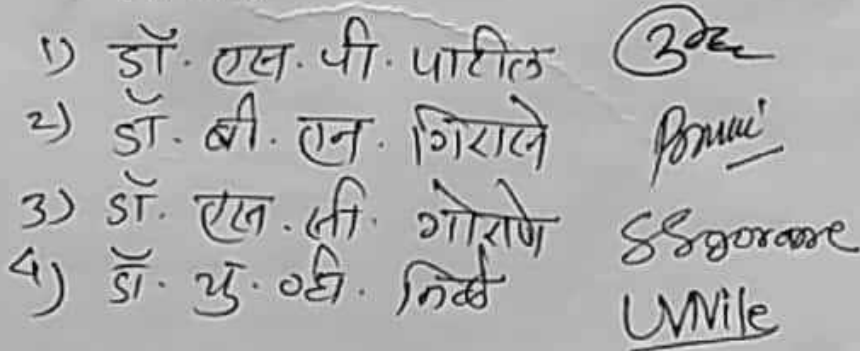 1) डॉ. एस. पी. पाटील
2) डॉ. बी. एन. गिरासे
3) डॉ. एस. सी. गोराणे
4) डॉ. यु. व्ही. निळे UVNile